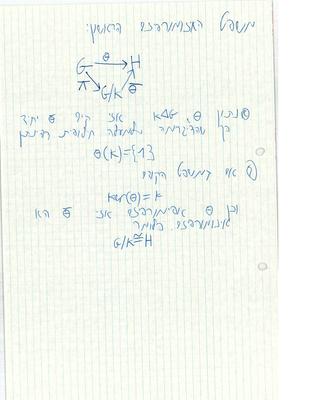 משפט האיזומורפיזם הראשון:
G θ H
π G/K θ̄
① נתון θ, K⊲G אז קיים θ̄ יחיד
כך שהדיאגרמה למעלה חילופית
θ(K)={1}
② אם במשפט הקודם
Ker(θ)=K
וכן θ אפימורפיזם אז θ̄ הוא
איזומורפיזם כלומר
G/K≅H